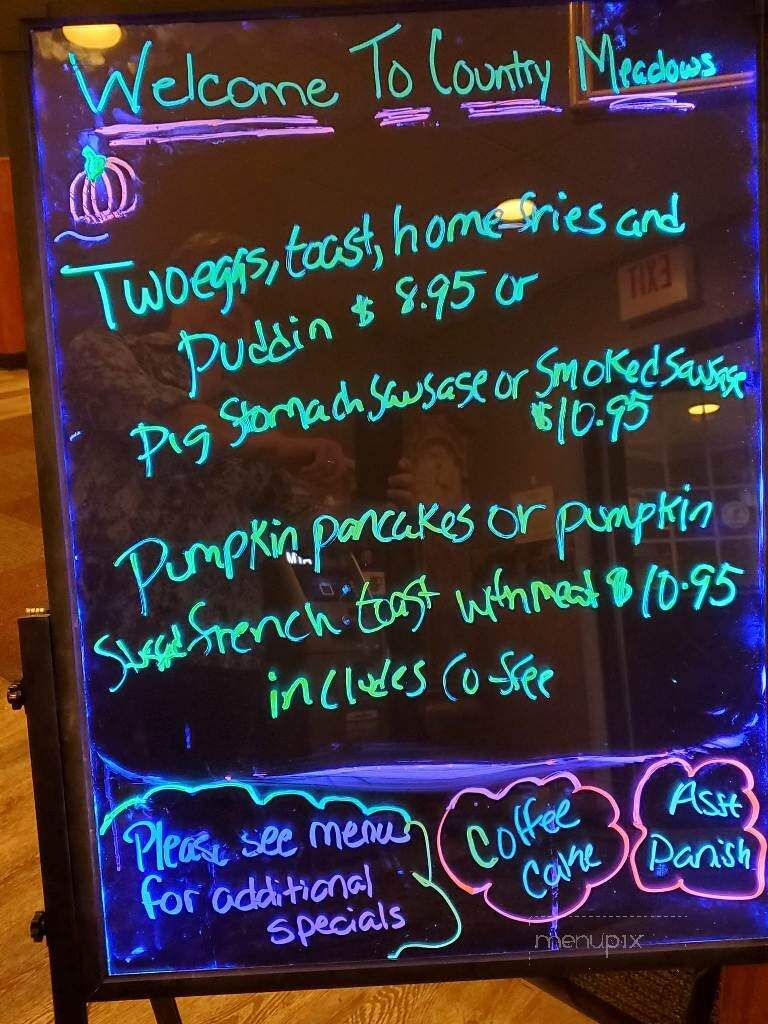 Welcome To Country Meadows
EXIT
Two eggs, toast, home fries and
Puddin $ 8.95 or
Pig Stomach Sausage or Smoked Sausage
$10.95
Pumpkin pancakes or pumpkin
French toast with meat $10.95
includes Coffee
Please see menu
for additional
specials
Coffee
Cake
Asst
Danish
menupix